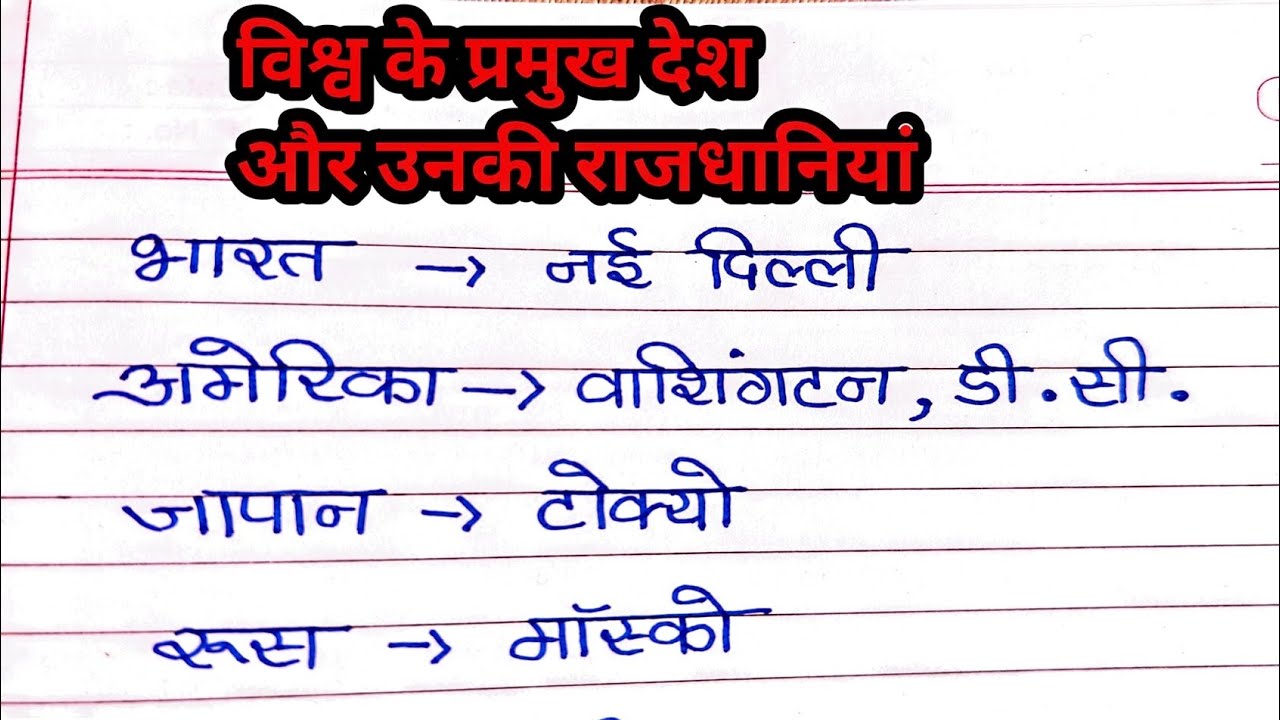 विश्व के प्रमुख देश
और उनकी राजधानियां
भारत → नई दिल्ली
अमेरिका → वाशिंगटन, डी.सी.
जापान → टोक्यो
रूस → मॉस्को